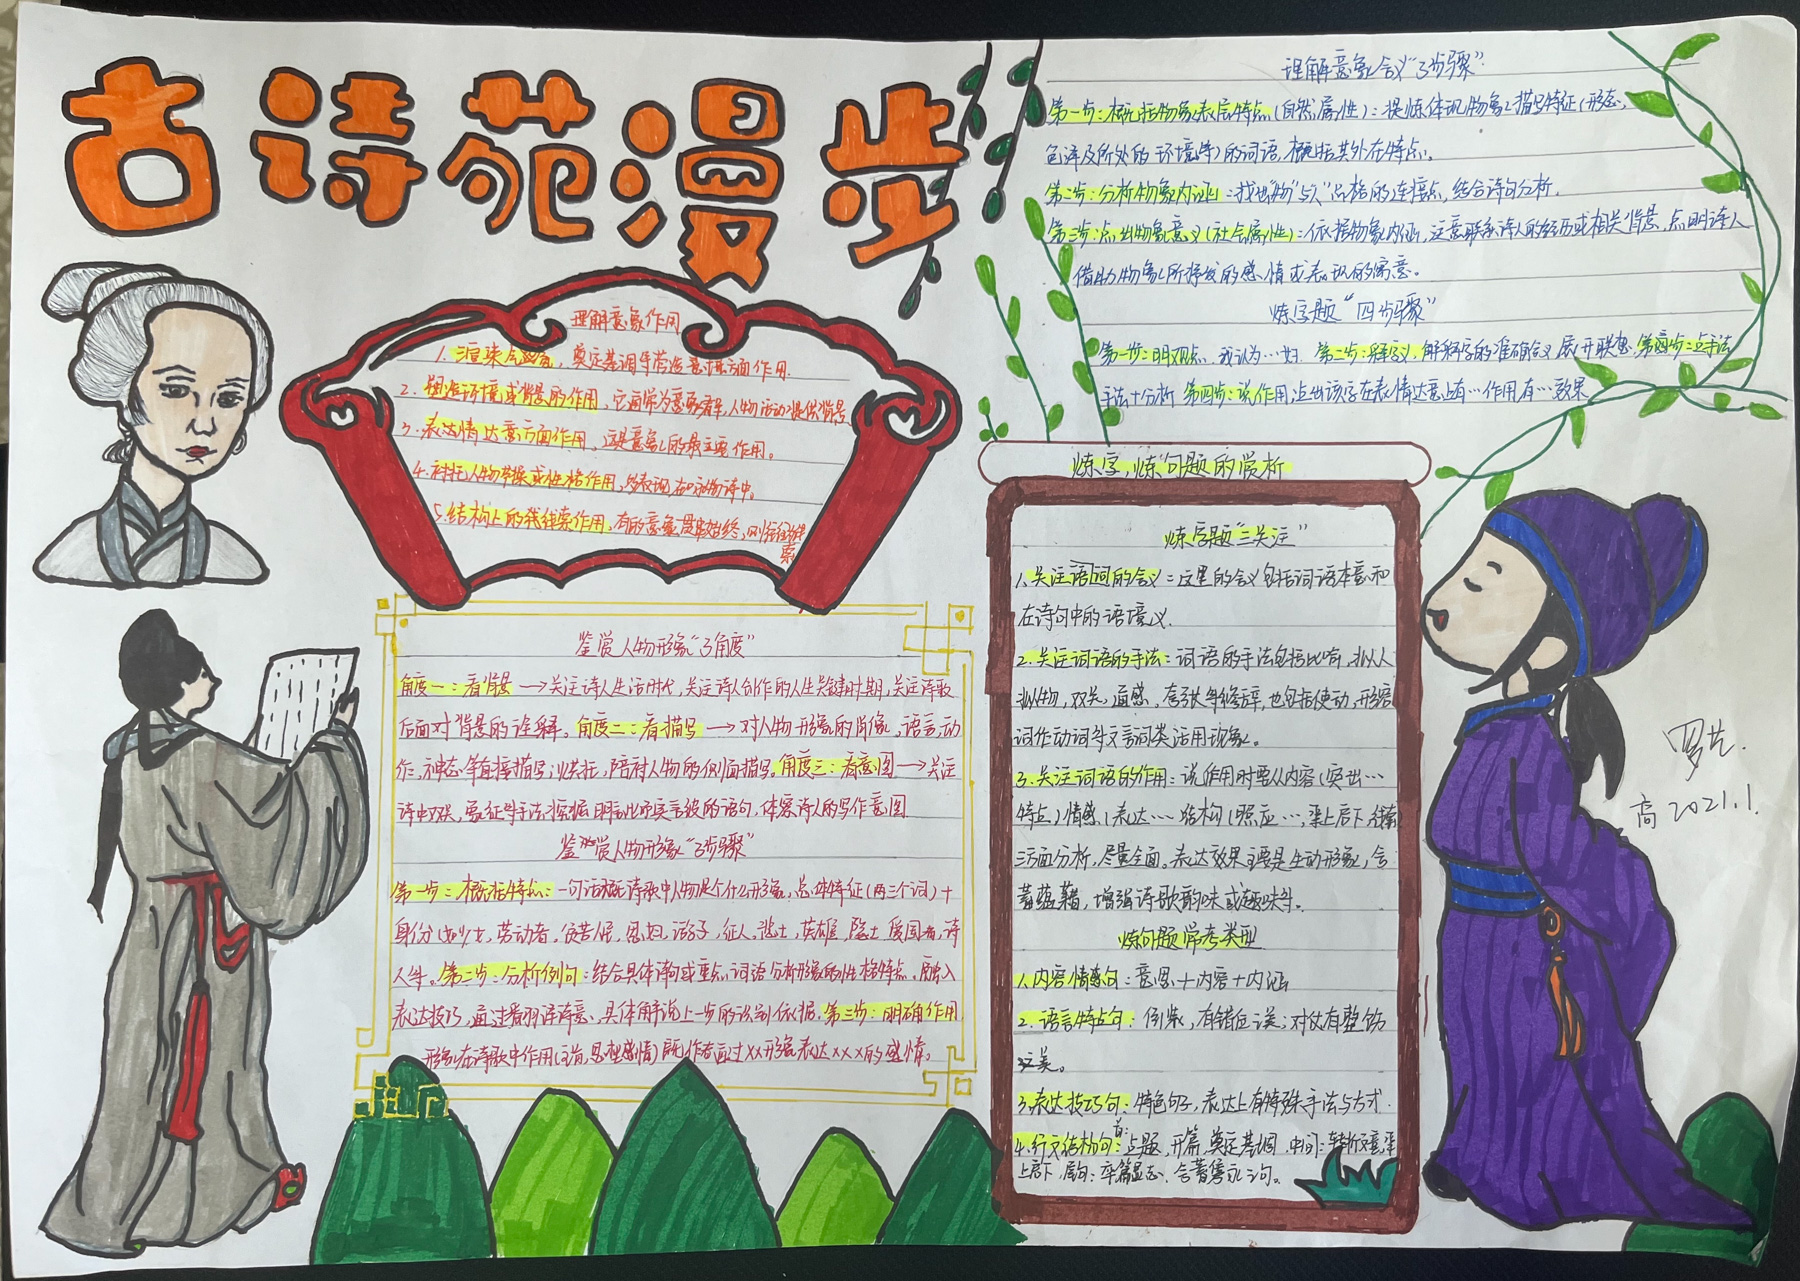 古诗苑漫步
理解意象作用
1.渲染气氛,奠定基调并营造意境方面作用.
2.塑造环境或背景的作用,它通常为意象着车,人物活动提供背景
3.表达情达意方面作用,这是意象的最主要作用。
4.衬托人物带操或性格作用,多表现在咏物诗中。
5.结构上的线线索作用,有的意象贯串始终,则往往线
索
鉴赏人物形象“3角度”
角度一:看背景→关注诗人生活时代,关注诗人创作的人生关键时期,关注诗歌
后面对背景的诠释。角度二:看描写→对人物形象的肖像,语言,动
作,神态等直接描写;烘托,陪衬人物的侧面描写。角度三:看意图→关注
诗中双关,象征等手法,挖掘明言此而实言彼的语句,体察诗人的写作意图
鉴赏人物形象“3步骤”
第一步:概括特点:一句话概括诗歌中人物是个什么形象,总体特征(两三个词)+
身份(如少士,劳动者,贫苦人民,思妇,游子,征人,逃士,英雄,隐士,爱国者,诗
人等。第二步:分析例句:结合具体诗句或重点词语分析形象的性格特点。融入
表达技巧,通过看翻译诗意,具体解说上一步的识别依据。第三步:明确作用
形象在诗歌中作用(主旨,思想感情)既作者通过xx形象表达xxx的感情。
理解意象含义“3步骤”
第一步:概括物象表层特点(自然属性):提炼体现物象描写特征(形态,
色泽及所处的环境等)的词语,概括其外在特点。
第二步:分析物象内涵:找出“物”与“人”品格的连接点,结合诗句分析.
第三步:点出物象意义(社会属性):依据物象内涵,注意联系诗人的经历或相关背景,点明诗人
借助物象所抒发的感情或表现的寓意。
炼字题“四步骤”
第一步:明观点,我认为…好.第二步:释字义,解释字的准确含义,展开联想,第四步:点手法
手法+分析 第四步:说作用,点出该字在表情达意上有…作用,有…效果
炼字,炼句题的赏析
炼字题“三关注”
1.关注语词的含义:这里的含义包括词语本意和
在诗句中的语境义.
2.关注词语的手法:词语的手法包括比喻,拟人
拟物,双关,通感,夸张等修辞,也包括使动,形容
词作动词等文言词类活用现象。
3.关注词语的作用:说作用时要从内容(突出…
特点)情感(表达…结构(照应…,承上启下,线索)
三方面分析,尽量全面。表达效果主要是生动形象,含
蓄蕴藉,增强诗歌韵味或趣味等。
炼句题常考类型
1.内容情感句:意思+内容+内涵
2.语言特点句:倒装,有错位之美;对仗有整饬
之美。
3.表达技巧句:特色句子,表达上有特殊手法与方式.
4.行文结构句:首:点题,开篇,奠定基调.中间:转折文意,承
上启下,尾句:卒篇显志,含蓄隽永之句。
高2021.1.